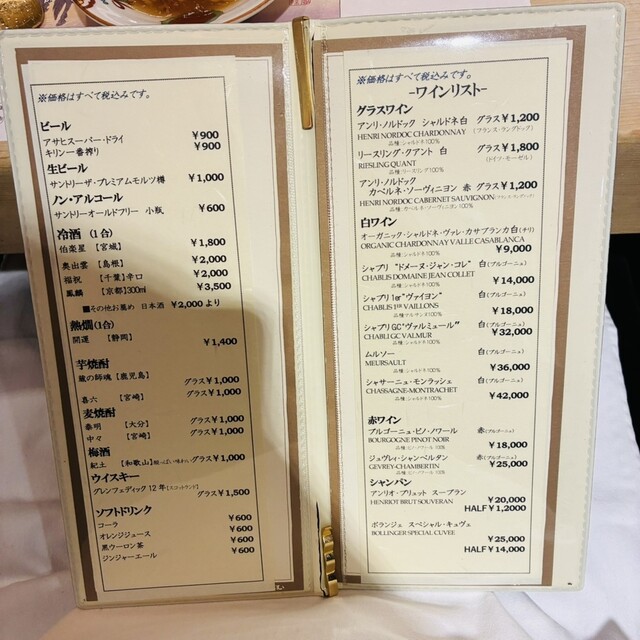 ※価格はすべて税込みです。
ビール
アサヒスーパー・ドライ ￥900
キリン一番搾り ￥900
生ビール
サントリーザ・プレミアムモルツ樽 ￥1,000
ノン・アルコール
サントリーオールドフリー 小瓶 ￥600
冷酒 (1合)
伯楽星 【宮城】 ￥1,800
奥出雲 【島根】 ￥2,000
福祝 【千葉】辛口 ￥2,000
【京都】300ml ￥3,500
■その他お薦め 日本酒 ￥2,000より
熱燗(1合)
開運 【静岡】 ￥1,400
芋焼酎
蔵の師魂【鹿児島】 グラス￥1,000
喜六 【宮崎】 グラス￥1,000
麦焼酎
泰明 【大分】 グラス￥1,000
中々 【宮崎】 グラス￥1,000
梅酒
紀土 【和歌山】 グラス￥1,000
ウイスキー
グレンフェディック 12 年【スコットランド】 グラス￥1,500
ソフトドリンク
コーラ ￥600
オレンジジュース ￥600
黒ウーロン茶 ￥600
ジンジャーエール ￥600
※価格はすべて税込みです。
-ワインリスト-
グラスワイン
アンリ・ノルドック シャルドネ 白 グラス￥1,200
HENRI NORDOC CHARDONNAY (フランス・ラングドック)
品種:シャルドネ100%
リースリング・クアント 白 グラス￥1,800
RIESLING QUANT (ドイツ・モーゼル)
品種:リースリング100%
アンリ・ノルドック
カベルネ・ソーヴィニヨン 赤 グラス￥1,200
HENRI NORDOC CABERNET SAUVIGNON
品種:カベルネ・ソーヴィニヨン100%
白ワイン
オーガニック・シャルドネ・ヴァレ・カサブランカ 白(チリ)
ORGANIC CHARDONNAY VALLE CASABLANCA
品種:シャルドネ100% ￥9,000
シャブリ "ドメーヌ・ジャン・コレ" 白(ブルゴーニュ)
CHABLIS DOMAINE JEAN COLLET
品種:シャルドネ100% ￥14,000
シャブリ1er"ヴァイヨン" 白(ブルゴーニュ)
CHABLIS 1ᴱᴿ VAILLONS
￥18,000
シャブリGC"ヴァルミュール" 白(ブルゴーニュ)
CHABLI GC VALMUR ￥32,000
品種:シャルドネ100%
ムルソー 白(ブルゴーニュ)
MEURSAULT ￥36,000
品種:シャルドネ100%
シャサーニュ・モンラッシェ 白(ブルゴーニュ)
CHASSAGNE-MONTRACHET
品種:シャルドネ100% ￥42,000
赤ワイン
ブルゴーニュ・ピノ・ノワール 赤(ブルゴーニュ)
BOURGOGNE PINOT NOIR
品種:ピノ・ノワール100% ￥18,000
ジュヴレィ・シャンベルタン 赤(ブルゴーニュ)
GEVREY-CHAMBERTIN ￥25,000
品種:ピノ・ノワール100%
シャンパン
アンリオ・ブリュット スーブラン
HENRIOT BRUT SOUVERAN ￥20,000
HALF￥1,2000
ボランジェ スペシャル・キュヴェ
BOLLINGER SPECIAL CUVEE ￥25,000
HALF￥14,000